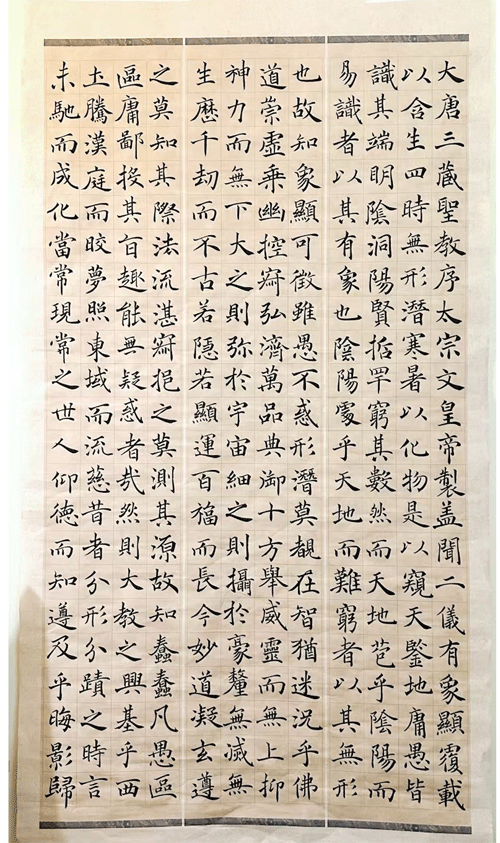 大唐三藏聖教序太宗文皇帝製盖聞二儀有象顯覆載
以含生四時無形潛寒暑以化物是以窺天鑒地庸愚皆
識其端明陰洞陽賢哲罕窮其數然而天地苞乎陰陽而
易識者以其有象也陰陽處乎天地而難窮者以其無形
也故知象顯可徵雖愚不惑形潛莫覩在智猶迷況乎佛
道崇虛乘幽控寂弘濟萬品典御十方舉威靈而無上抑
神力而無下大之則弥於宇宙細之則攝於豪釐無滅無
生歷千劫而不古若隱若顯運百福而長今妙道凝玄遵
之莫知其際法流湛寂挹之莫測其源故知蠢蠢凡愚區
區庸鄙投其旨趣能无疑惑者哉然則大教之興基乎西
圡騰漢庭而晈夢照東域而流慈昔者分形分蹟之時言
未馳而成化當常現常之世人仰德而知遵及乎晦影歸